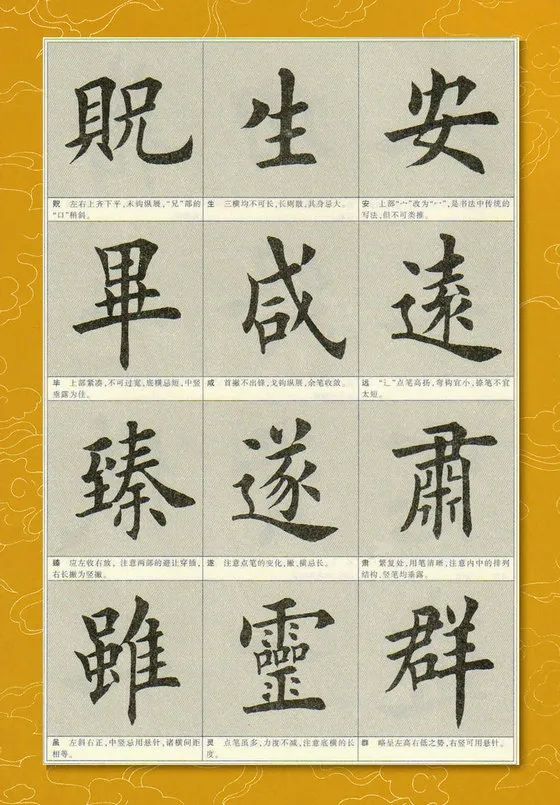 安
安 上部“宀”改为“冖”,是书法中传统的
写法,但不可类推。
遠
远 “辶”点笔高扬,弯钩宜小,捺笔不宜
太短。
肅
肃 繁复处,用笔清晰,注意内中的排列
结构,竖笔均垂露。
群
群 略呈左高右低之势,右竖可用悬针。
生
生 三横均不可长,长则散,其身忌大。
咸
咸 首撇不出锋,戈钩纵展,余笔收敛。
遂
遂 注意点笔的变化,撇、横忌长。
靈
灵 点笔虽多,力度不减,注意底横的长
度。
貺
贶 左右上齐下平,末钩纵展,“兄”部的
“口”稍斜。
畢
毕 上部紧凑,不可过宽,底横忌短,中竖
垂露为佳。
臻
臻 应左收右放,注意两部的避让穿插,
右长撇为竖撇。
雖
虽 左斜右正,中竖忌用悬针,诸横间距
相等。